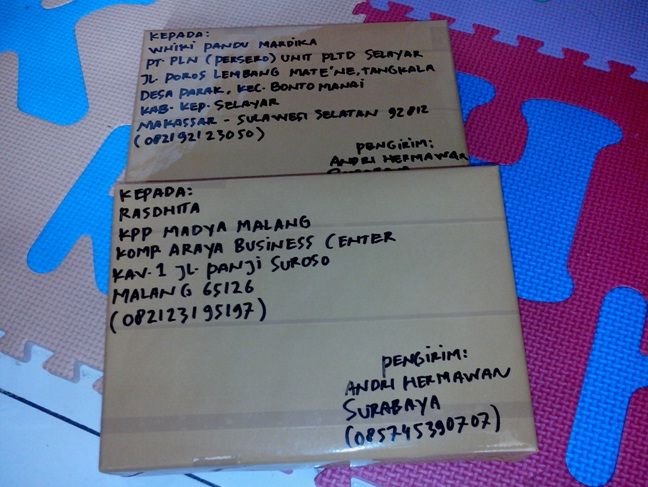 KEPADA:
WHIKI PANDU MARDIKA
PT. PLN (PERSERO) UNIT PLTD SELAYAR
JL. POROS LEMBANG MATE'NE, TANGKALA
DESA PARAK, KEC. BONTO MANAI
KAB. KEP. SELAYAR
MAKASSAR - SULAWESI SELATAN 92812
(082192123050)
PENGIRIM:
ANDRI HERMAWAN
SURABAYA
KEPADA:
RASDHITA
KPP MADYA MALANG
KOMP. ARAYA BUSINESS CENTER
KAV. 1 JL. PANJI SUROSO
MALANG 65126
(082123195197)
PENGIRIM:
ANDRI HERMAWAN
SURABAYA
(085745390707)